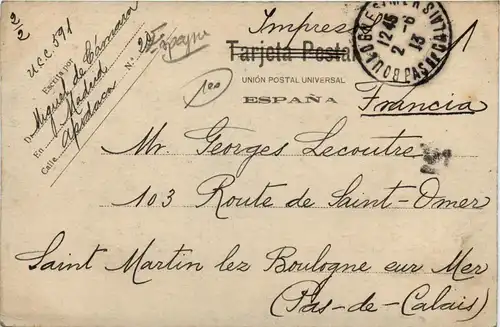 2/2
U.C.C. 591
Escrita por
D. Miguel de Cámara
En Madrid
Calle Apodaca N.° 20
Espagne
100
Impres
Tarjeta Postal
UNIÓN POSTAL UNIVERSAL
ESPAÑA
Francia
BOULOGNE S MER
12 45
2 -6
13
PAS DE CALAIS
1
Mr. Georges Lecoutre
103 Route de Saint-Omer
Saint Martin lez Boulogne sur Mer
(Pas-de-Calais)